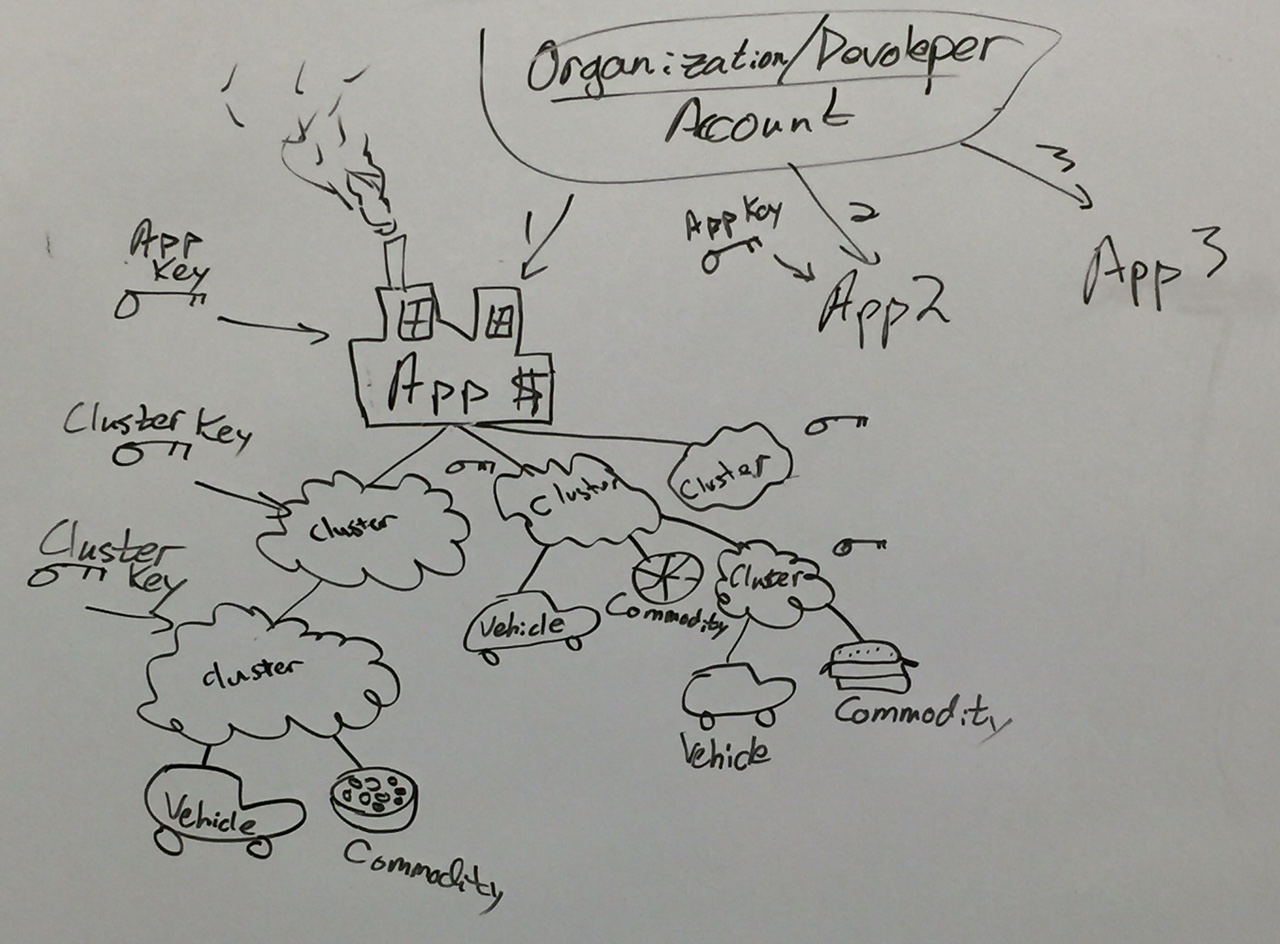 Organization/Devoleper
Account
1
2
3
App
Key
App Key
App 2
App 3
App $
Cluster Key
Cluster
Cluster
Cluster
Cluster
Key
Cluster
Vehicle
Commodity
cluster
Vehicle
Commodity
Vehicle
Commodity